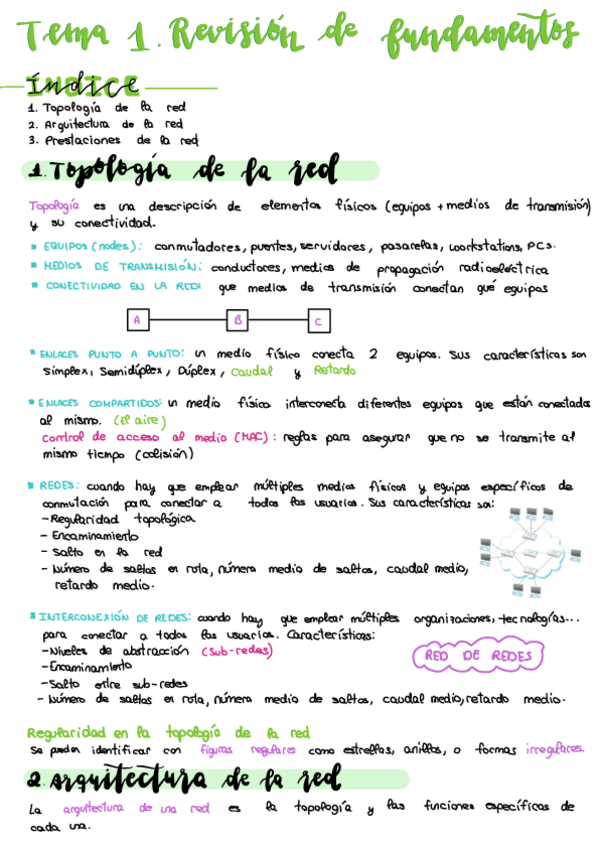 Tema 1. Revisión de fundamentos
ÍNDICE
1. Topología de la red
2. Arquitectura de la red
3. Prestaciones de la red
1. Topología de la red
Topología es una descripción de elementos físicos (equipos + medios de transmisión)
y su conectividad.
EQUIPOS (nodes): conmutadores, puentes, servidores, pasarelas, workstations, PCs.
MEDIOS DE TRANSMISIÓN: conductores, medios de propagación radioeléctrica
CONECTIVIDAD EN LA RED: que medios de transmisión conectan qué equipos
A B C
ENLACES PUNTO A PUNTO: un medio físico conecta 2 equipos. Sus características son
Simplex, Semidúplex, Dúplex, caudal y Retardo
ENLACES COMPARTIDOS: un medio físico interconecta diferentes equipos que están conectados
al mismo. (El aire)
Control de acceso al medio (MAC): reglas para asegurar que no se transmite al
mismo tiempo (colisión)
REDES: cuando hay que emplear múltiples medios físicos y equipos específicos de
conmutación para conectar a todos los usuarios. Sus características son:
- Regularidad topológica
- Encaminamiento
- Salto en la red
- Número de saltos en ruta, número medio de saltos, caudal medio,
retardo medio.
INTERCONEXIÓN DE REDES: cuando hay que emplear múltiples organizaciones, tecnologías...
para conectar a todos los usuarios. Características:
- Niveles de abstracción (Sub-redes)
RED DE REDES
- Encaminamiento
- Salto entre sub-redes
- Número de saltos en ruta, número medio de saltos, caudal medio, retardo medio.
Regularidad en la topología de la red
Se pueden identificar con figuras regulares como estrellas, anillos, o formas irregulares.
2. Arquitectura de la red
La arquitectura de una red es la topología y las funciones específicas de
cada una.